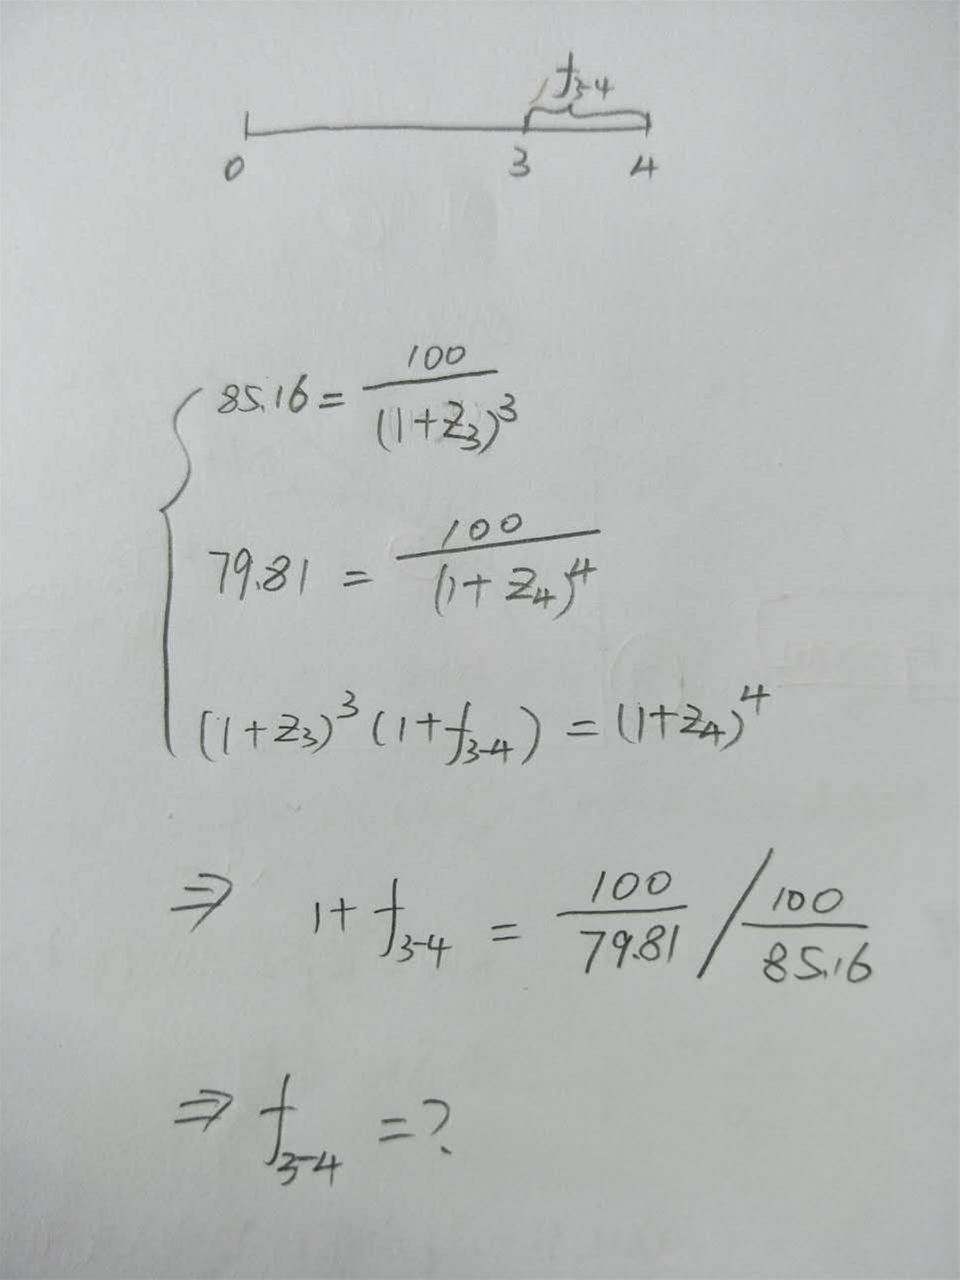 f₃₋₄
0 3 4
85.16 = 100/(1+Z₃)³
79.81 = 100/(1+Z₄)⁴
(1+Z₃)³(1+f₃₋₄) = (1+Z₄)⁴
⇒ 1+f₃₋₄ = 100/79.81 / 100/85.16
⇒ f₃₋₄ = ?